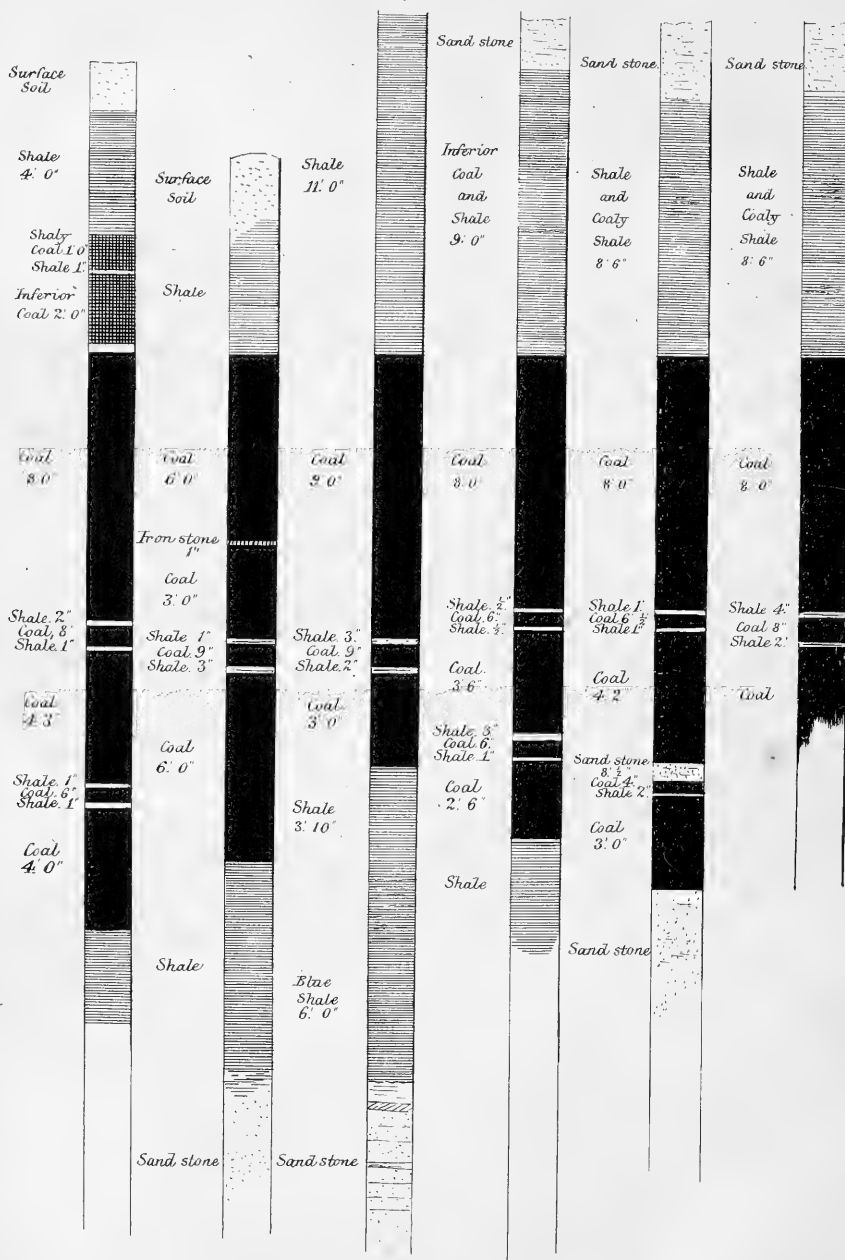 Surface
Soil
Shale
4' 0"
Shaly
Coal 1' 0"
Shale 1"
Inferior
Coal 2' 0"
Coal
8' 0"
Shale. 2"
Coal, 8"
Shale. 1"
Coal
4' 3"
Shale. 1"
Coal. 6"
Shale. 1"
Coal
4' 0"
Surface
Soil
Shale
Coal
6' 0"
Iron stone
1"
Coal
3' 0"
Shale 1"
Coal. 9"
Shale. 3"
Coal
6' 0"
Shale
Sand stone
Shale
11' 0"
Coal
9' 0"
Shale. 3"
Coal 9"
Shale. 2"
Coal
3' 0"
Shale
3' 10"
Blue
Shale
6' 0"
Sand stone
Sand stone
Inferior
Coal
and
Shale
9' 0"
Coal
8' 0"
Shale. ½"
Coal. 6"
Shale. ½"
Coal.
3' 6"
Shale. 3"
Coal. 6"
Shale. 1"
Coal
2' 6"
Shale
Sand stone
Shale
and
Coaly
Shale
8' 6"
Coal
8' 0"
Shale 1"
Coal 6 ½"
Shale 1"
Coal
4' 2"
Sand stone
8 ½"
Coal 4"
Shale 2"
Coal
3' 0"
Sand stone
Sand stone
Shale
and
Coaly
Shale
8' 6"
Coal
8' 0"
Shale 4"
Coal 8"
Shale 2"
Coal